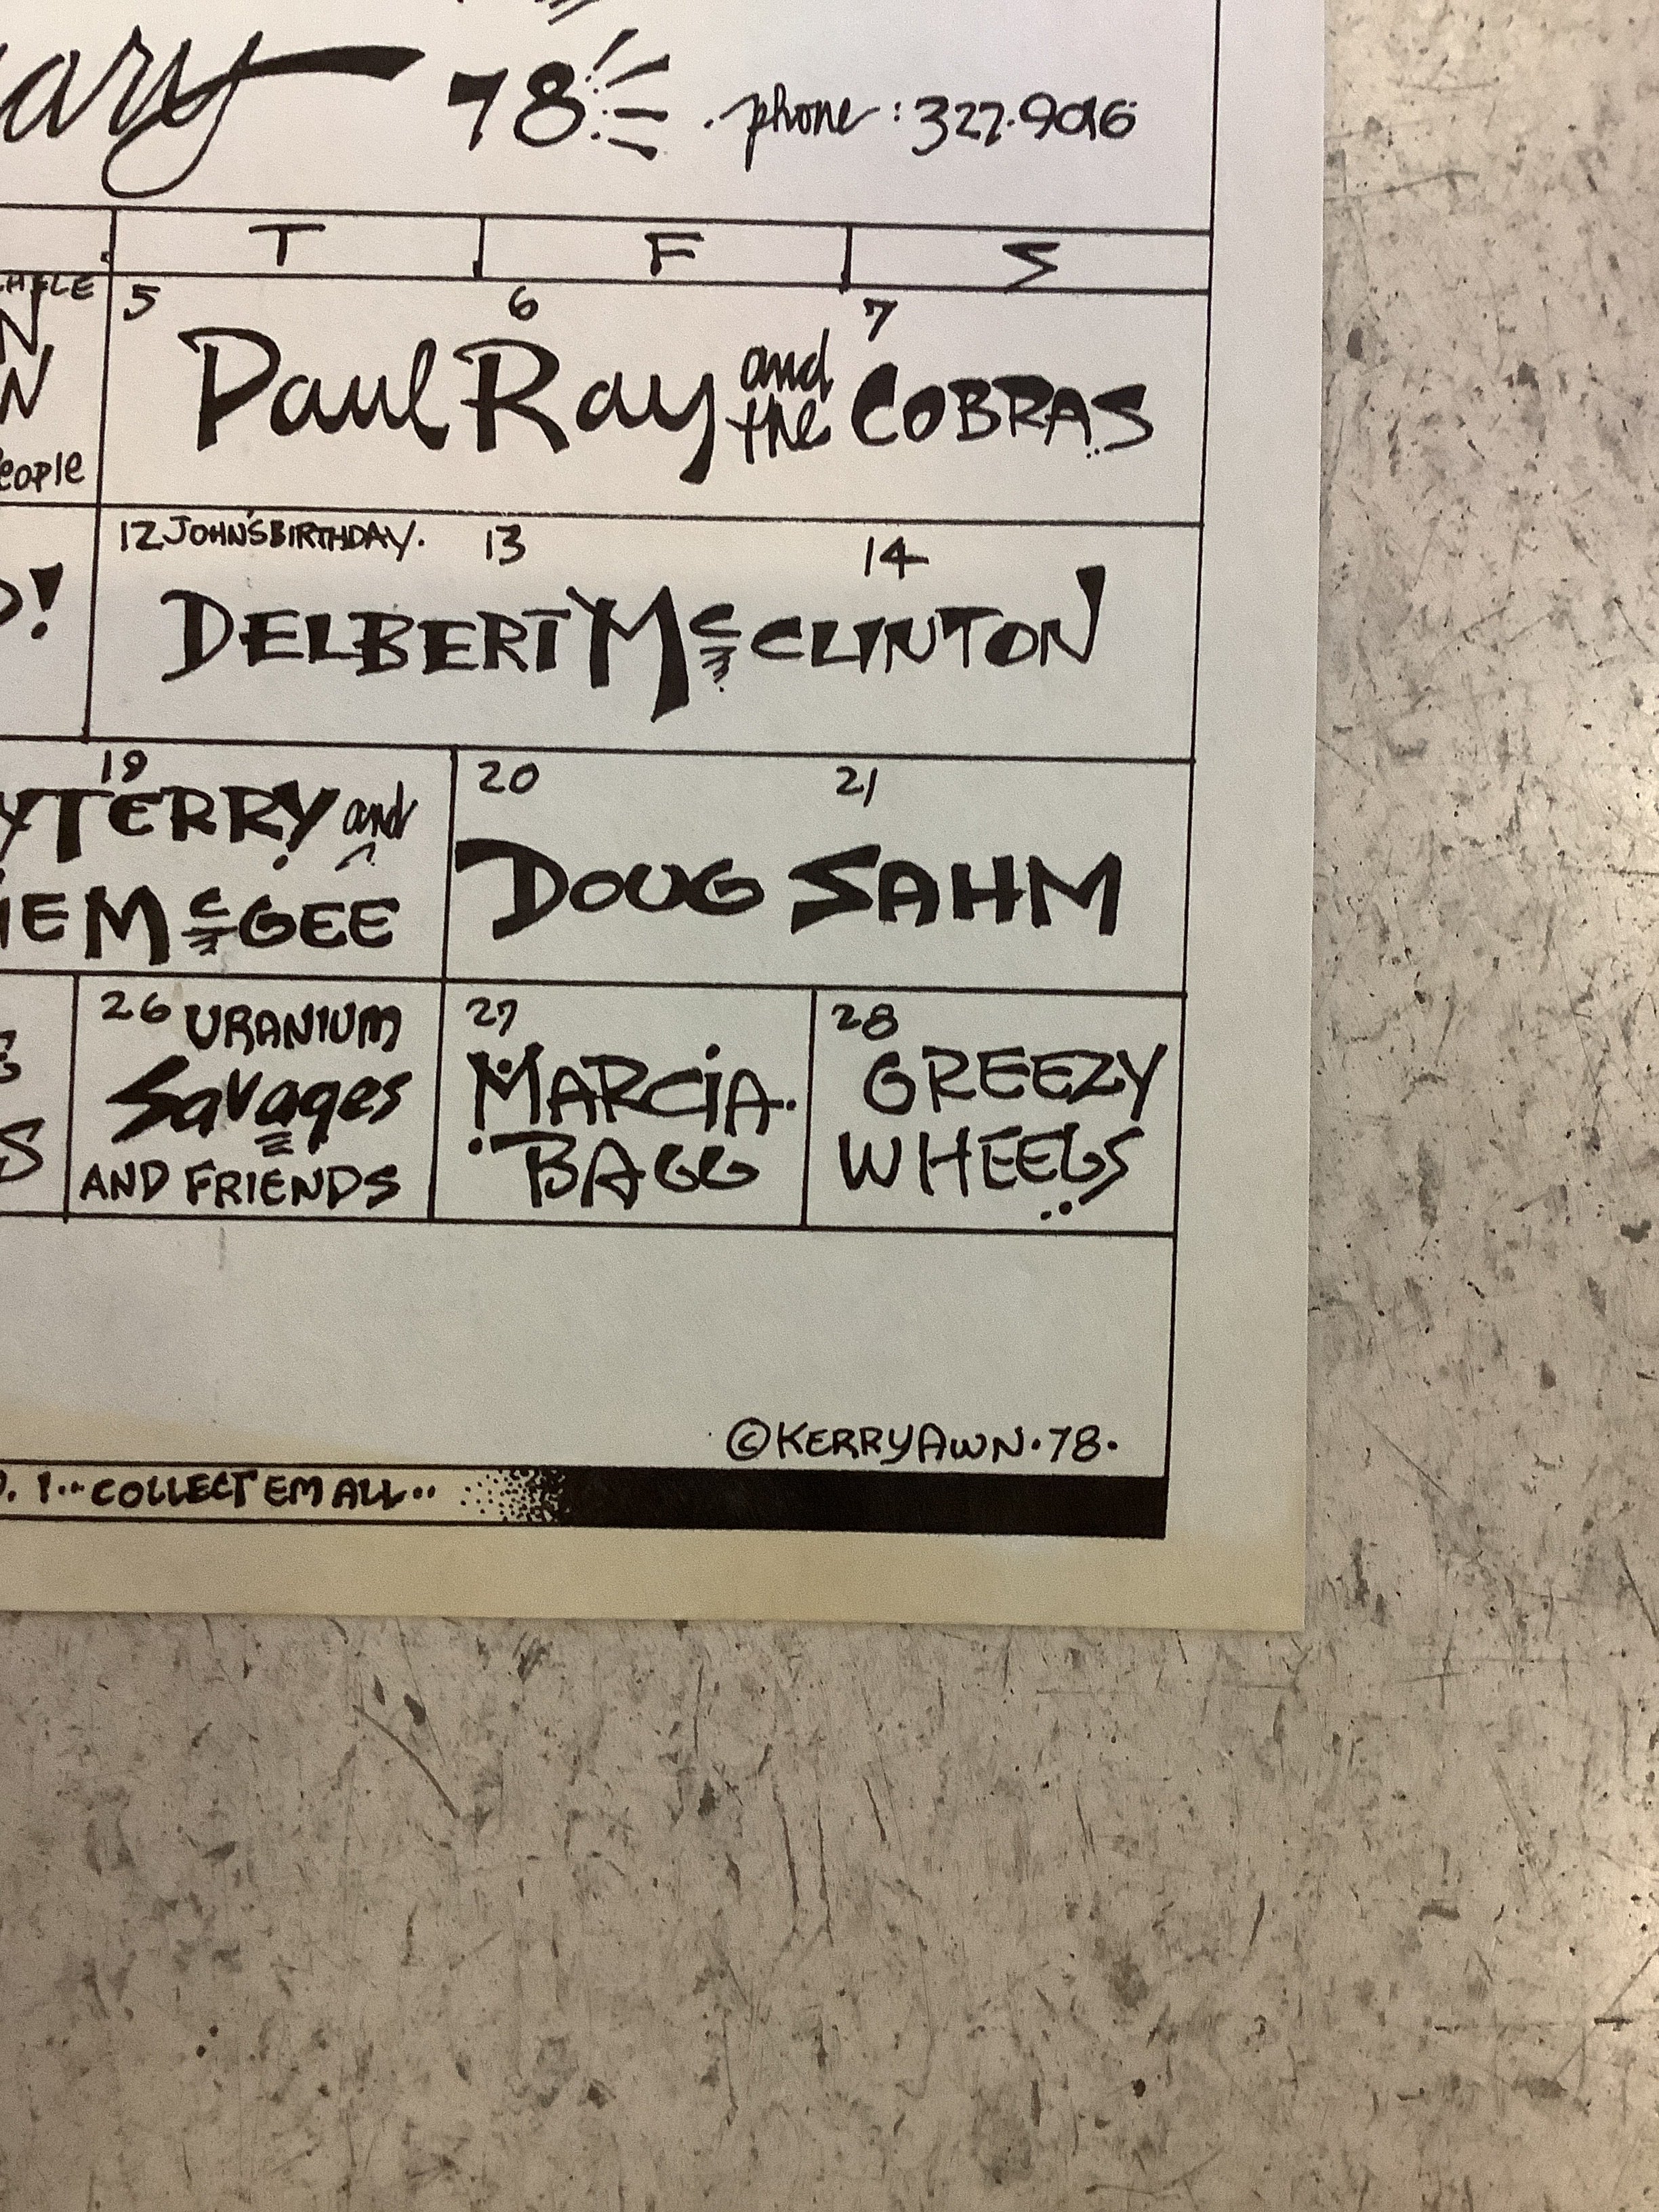 78 . phone : 327.9016
T F S
5 6 7
Paul Ray and the COBRAS
eople
12 JOHN'S BIRTHDAY. 13 14
DELBERT McCLINTON
19 20 21
TERRY and
McGEE
DOUG SAHM
26 URANIUM
Savages
AND FRIENDS
27
MARCIA
BAGG
28
GREEZY
WHEELS
© KERRY AWN · 78 ·
1 ·· COLLECT EM ALL ··